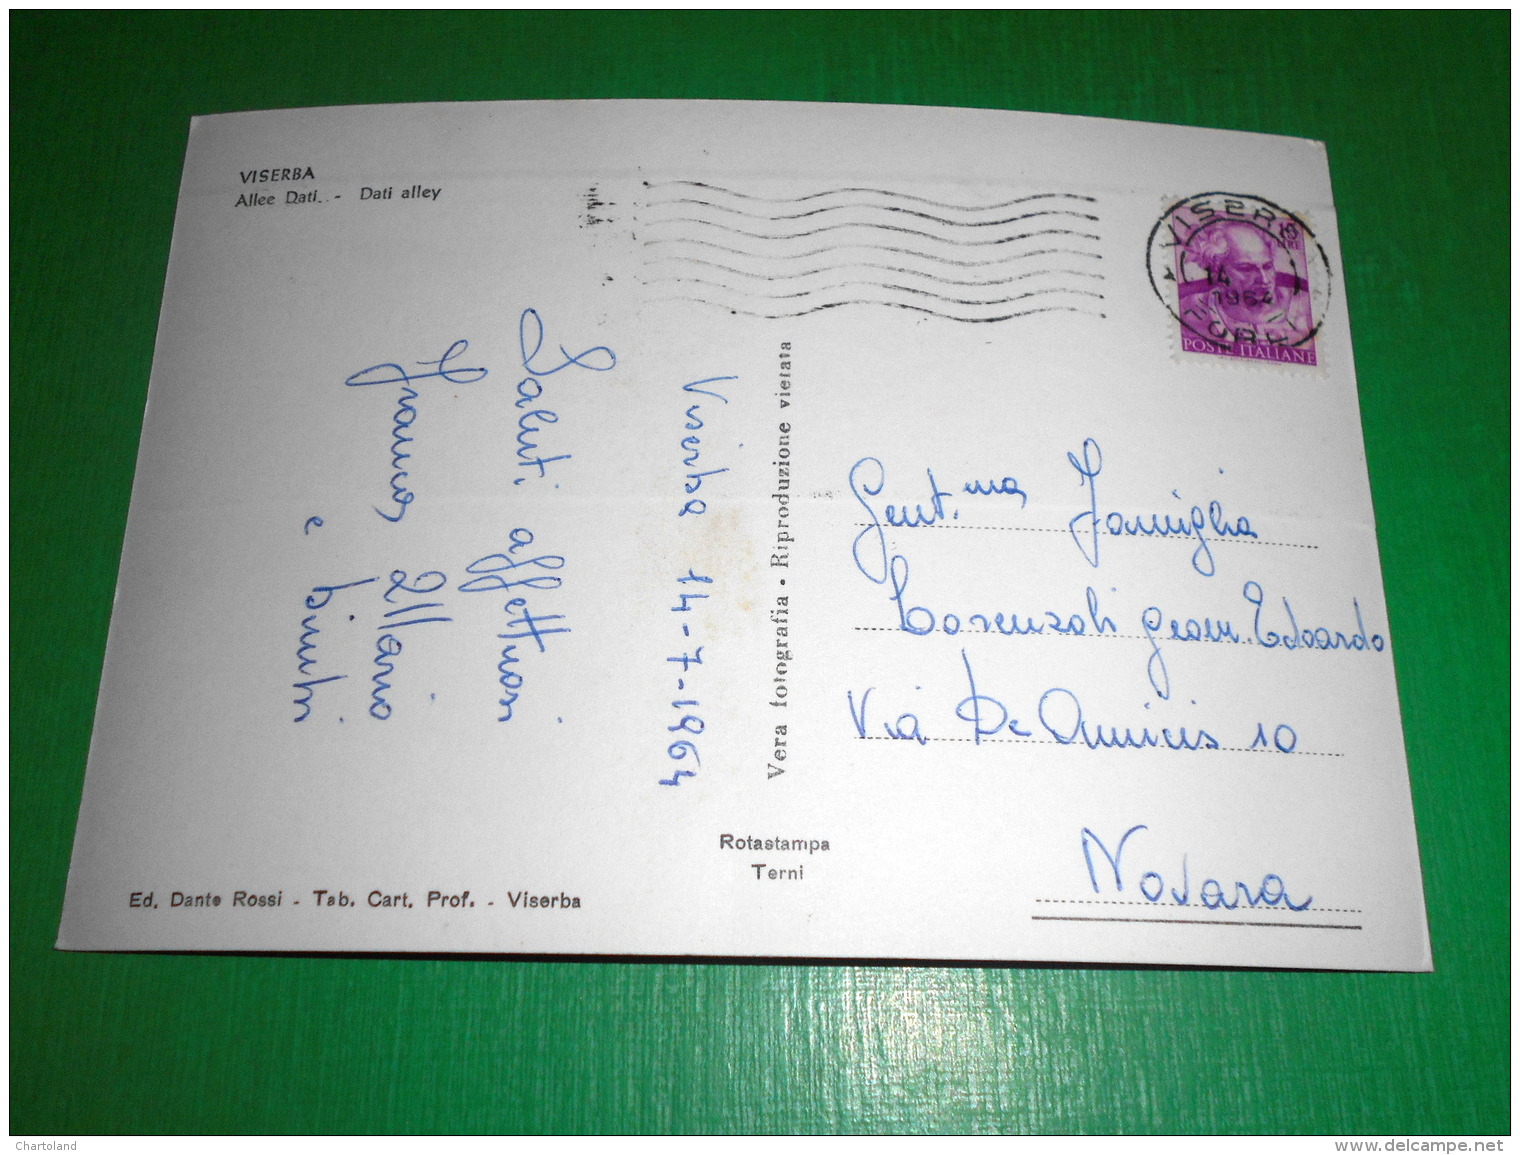 VISERBA
Allee Dati. - Dati alley
VISERBA
14
1964
15
LIRE
POSTE ITALIANE
Viserba 14-7-1964
Saluti affettuosi
Franca
e bimbi
Vera fotografia • Riproduzione vietata
Gent.ma Famiglia
geom. Edoardo
Via De Amicis 10
Novara
Rotastampa
Terni
Ed. Dante Rossi - Tab. Cart. Prof. - Viserba
Chartoland
www.delcampe.net